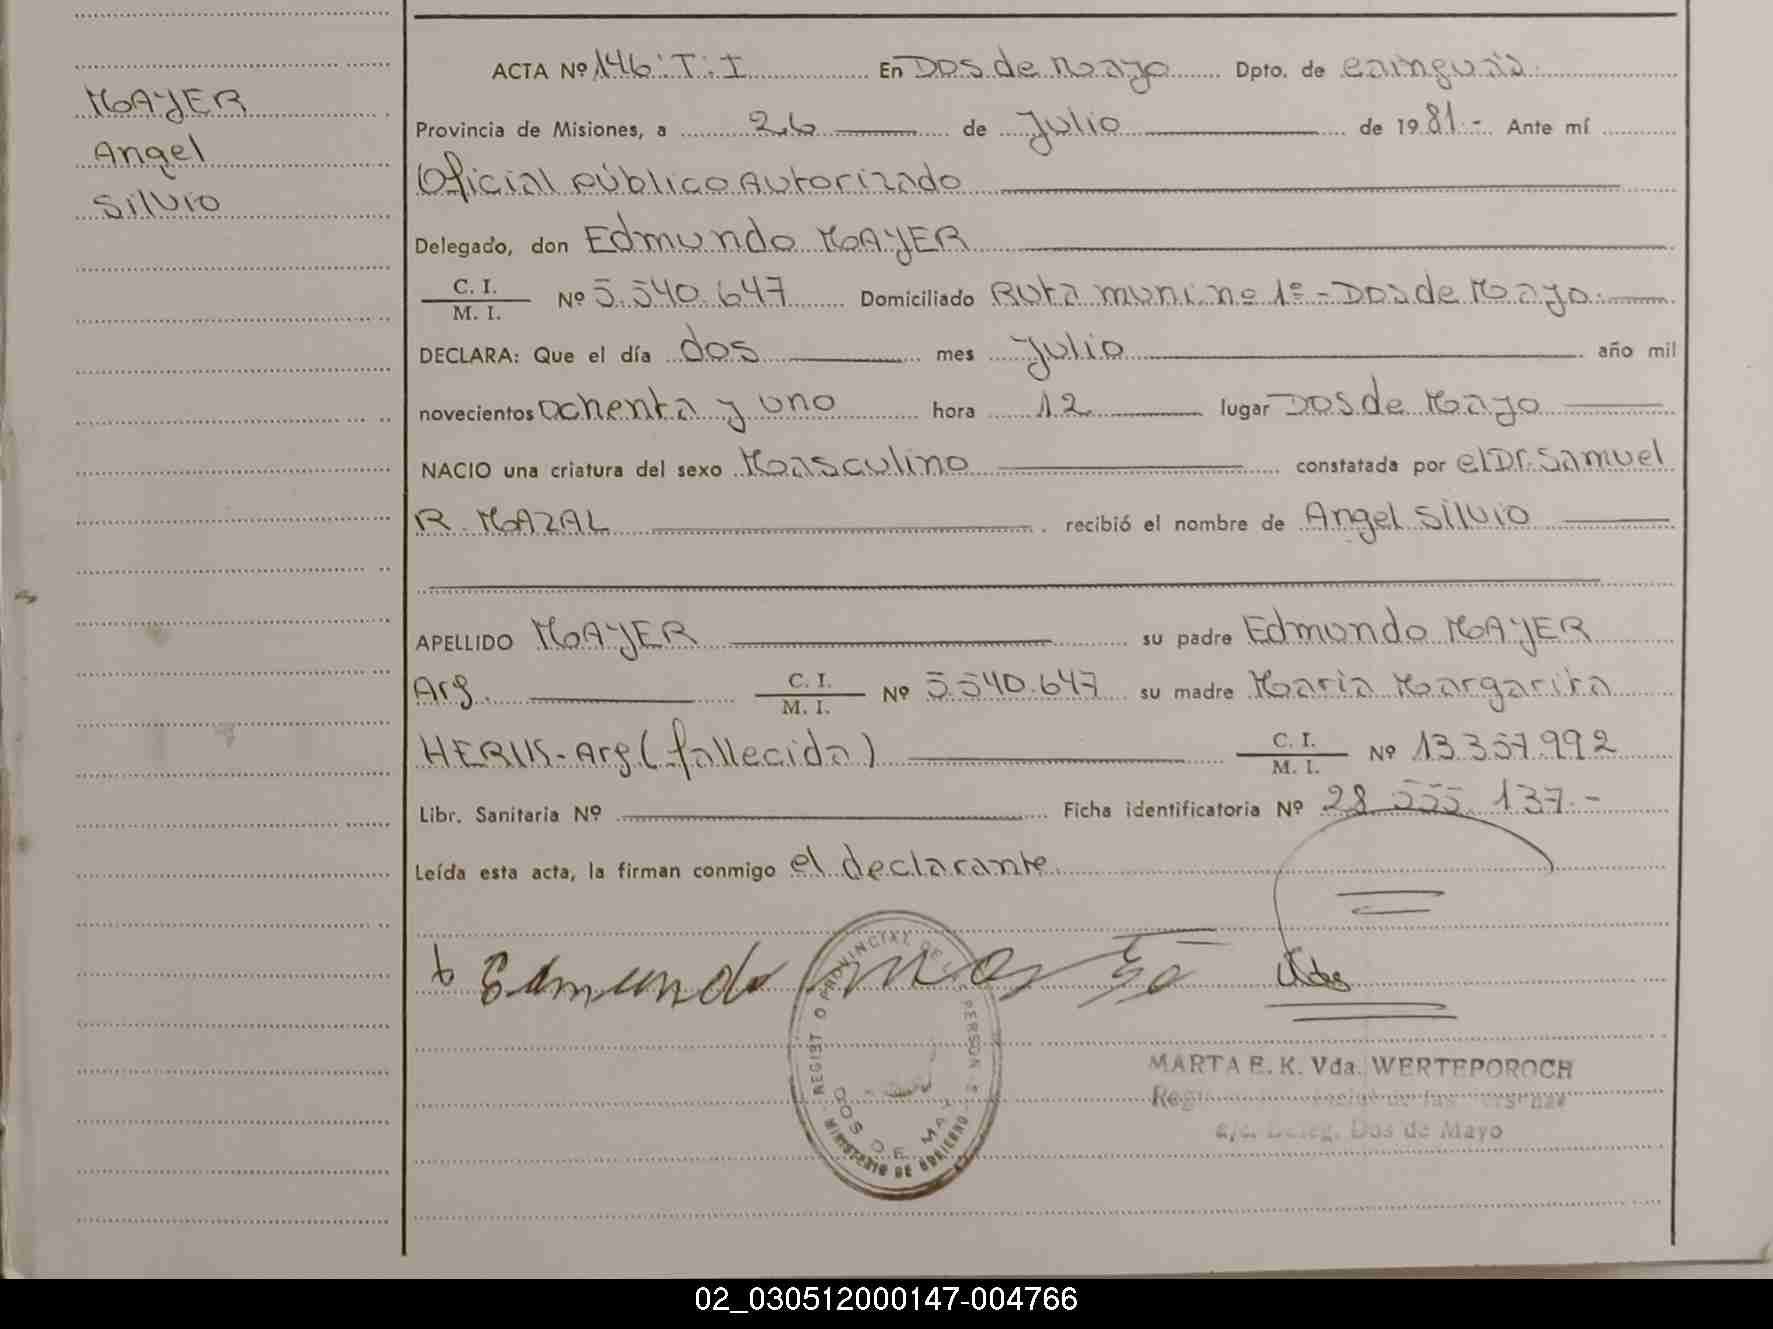 MAYER
Angel
Silvio
ACTA Nº 146 T. I En Dos de Mayo Dpto. de Cainguás
Provincia de Misiones, a 26 de Julio de 1981.- Ante mí
Oficial Público Autorizado
Delegado, don Edmundo MAYER
C. I.
M. I. Nº 5.540.647 Domiciliado Ruta muni nº 1º - Dos de Mayo.
DECLARA: Que el día dos mes Julio año mil
novecientos ochenta y uno hora 12 lugar Dos de Mayo
NACIO una criatura del sexo Masculino constatada por el Dr. Samuel
R. MAZAL recibió el nombre de Angel Silvio
APELLIDO MAYER su padre Edmundo MAYER
Arg. C. I.
M. I. Nº 5.540.647 su madre Maria Margarita
- Arg (fallecida) C. I.
M. I. Nº 13.357.992
Libr. Sanitaria Nº Ficha identificatoria Nº 28 555 137.-
Leída esta acta, la firman conmigo el declarante
Edmundo
REGISTRO PROVINCIAL DE LAS PERSONAS
DOS DE MAYO
MINISTERIO DE GOBIERNO
MARTA E. K. Vda. WERTEPOROCH
a/c. Deleg. Dos de Mayo
02_030512000147-004766